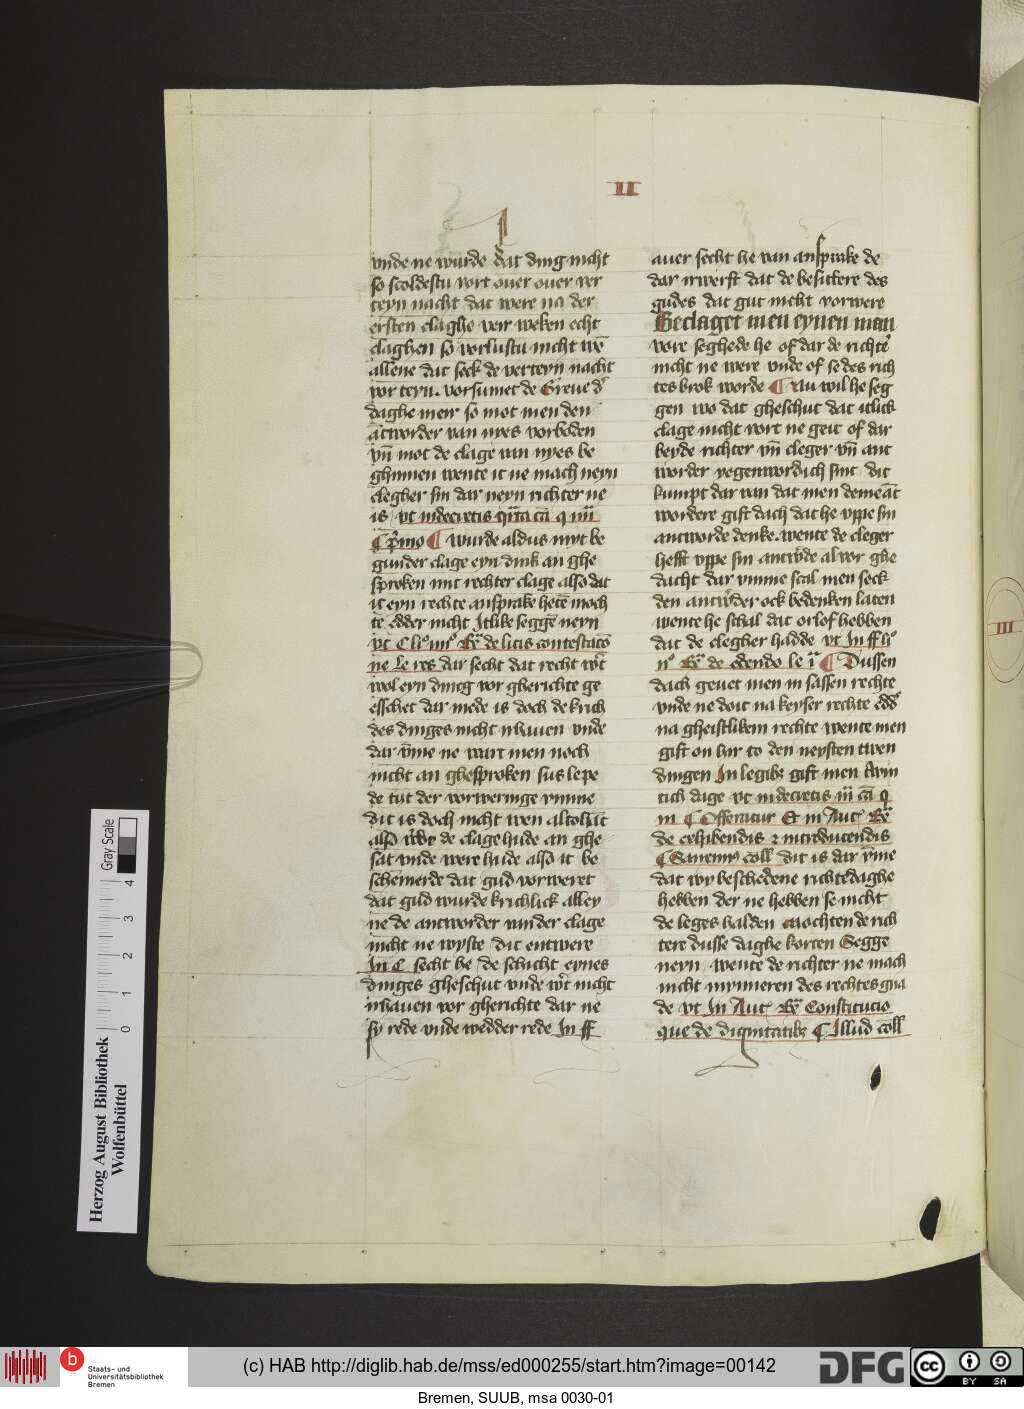 II
vnde ne wurde dat ding nicht
so scoldestu vort ouer ouer ver
teyn nacht dat were na der
ersten claghe veir weken echt
claghen so vorlustu nicht wē
allene dat seck de verteyn nacht
vor teyn. vorsumet de Greue d̓
daghe meir so mot men den
ātworder van nyes vorboden
vn̄ mot de clage van nyes be
ghinnen wente it ne mach neyn
clegher sin dar neyn richter ne
is vt in decretis q̄rta cā q iiii
wurde aldus myt be
gunder clage eyn dink an ghe
sproken mit rechter clage also dat
it eyn rechte ansprake hetē moch
te edder micht Itlike seggē neyn
de litis contestacō
ne le res dar secht dat recht
wol eyn dincg vor gherichte ge
esschet dar mede is doch de krich
des dinges nicht nhauen vnde
dar v̄me ne wart men noch
nicht an ghesproken sus lepe
de tyt der vorweringe vmme
dit is doch nicht wen
also de clage hude an ghe
sat vnde were hude also it be
schēmerde dat gud vorweret
dat gud wurde krichlick alley
ne de antworder van der clage
nicht ne wyste dit entwere
In C secht he de schicht eynes
dinges gheschut vnde nicht
nhauen vor gherichte dar ne
sy rede vnde wedder rede In ff
auer secht he van ansprake de
dar irwerft dat de besittere des
gudes dat gut nicht vorwere
Beclaget men eynen man
vore seghede he of dar de richte
nicht ne were vnde of se des rich
tes brok worde Nu wil he seg
gen wo dat gheschut dat itlick
clage nicht vort ne geit of dar
beyde richter vn̄ cleger vn̄ ant
worder yegenwordich sint dit
kumpt dar van dat men demeāt
wordere gift dach dat he vppe sin
antworde denke. wente de cleger
hefft vppe sin al vor ghe
dacht dar vmme scal men seck
den ock bedenken laten
wente he schal dat orlof hebben
dat de clegher hadde vt In ff
de edendo le i Dussen
dach geuet men in sassen rechte
vnde ne doit na keyser rechte
na gheistlikem rechte wente men
gift on bar to den neysten twen
dingen In legibꝫ gift men twin
tich dage vt in decretis iii cā q
iii C Offeratur Et in Aut
de exhibendis ⁊ introducendis
dit is dar v̄me
dat wy beschedene richtedaghe
hebben der ne hebben se nicht
de leges halden mochten de rich
tere dusse daghe korten Segge
neyn wente de richter ne mach
nicht mynneren des rechtes gna
de vt In Aut Constitucio
que de dignitatibꝫ C Illud coll̄
III
Gray Scale
4
3
2
1
0
Herzog August Bibliothek
Wolfenbüttel
b
Staats- und
Universitätsbibliothek
Bremen
(c) HAB http://diglib.hab.de/mss/ed000255/start.htm?image=00142
DFG
cc
BY SA
Bremen, SUUB, msa 0030-01